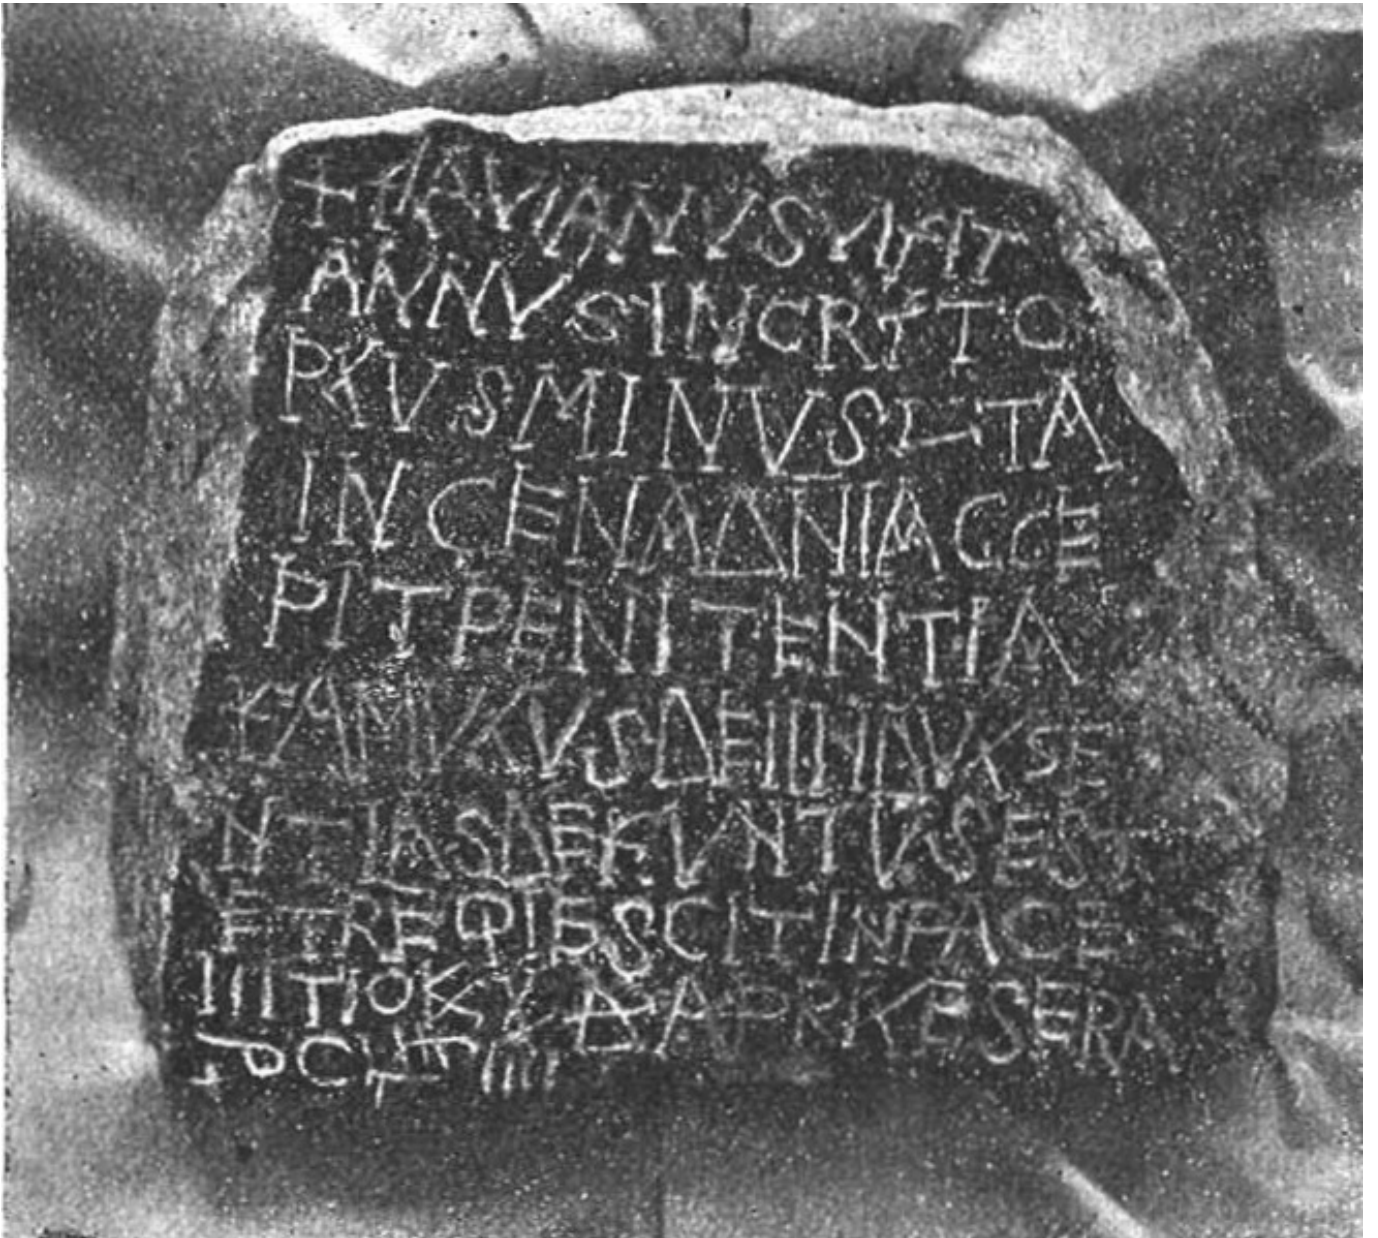 + FLAVIANVS VIXIT
ANNVS IN CRISTO
PLVS MINVS LTA
IN CENA DNI ACCE
PIT PENITENTIA
FAMVLVS DEI IN AVRSE
NTIAS DEFVNTVS EST
ET REQIESCIT IN PACE
III